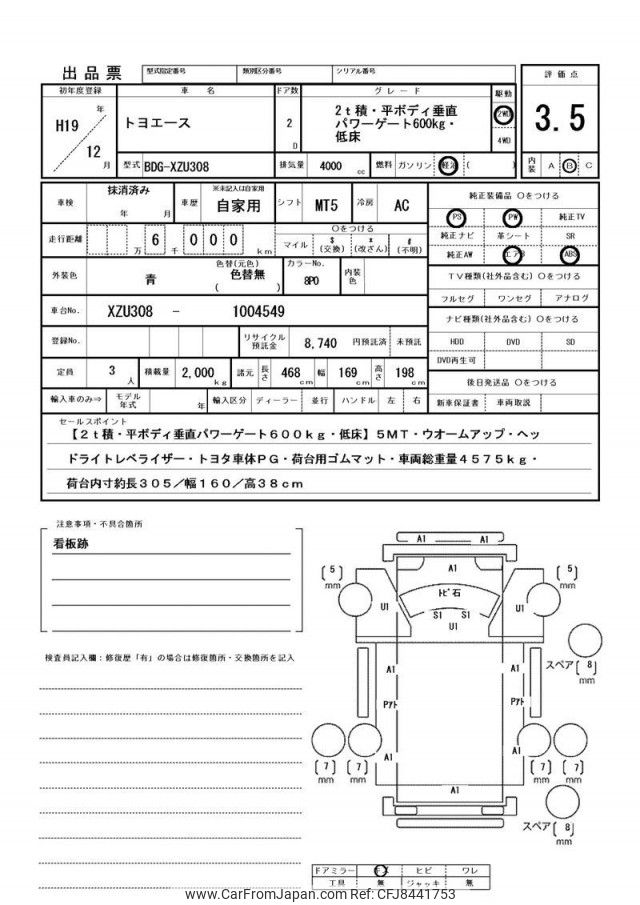 出品票 型式指定番号 類別区分番号 シリアル番号
初年度登録 車名 ドア数 グレード 駆動 評価点
H19 年 12 月 トヨエース 2 D 2WD 4WD 3.5
2t積・平ボディ垂直
パワーゲート600kg・
低床
型式 BDG-XZU308 排気量 4000 cc 燃料 ガソリン 軽油 ( ) 内装 A B C
車検 抹消済み 年 月 車歴 ※未記入は自家用 自家用 シフト MT5 冷房 AC
純正装備品 〇をつける
PS PW 純正TV
走行距離 万 6 千 0 0 0 km 〇をつける マイル $(交換) *(改ざん) #(不明)
純正ナビ 革シート SR
純正AW エアB ABS
外装色 青 色替(元色) 色替無 ( ) カラーNo. 8P0 内装色
TV種類(社外品含む) 〇をつける
フルセグ ワンセグ アナログ
車台No. XZU308 - 1004549
ナビ種類(社外品含む) 〇をつける
登録No. リサイクル預託金 8,740 円預託済 未預託
HDD DVD SD
DVD再生可
定員 3 人 積載量 2,000 kg 諸元 長さ 468 cm 幅 169 cm 高さ 198 cm
後日発送品 〇をつける
輸入車のみ⇒ モデル年式 年 輸入区分 ディーラー 並行 ハンドル 左 右
新車保証書 車両取説
セールスポイント
【2t積・平ボディ垂直パワーゲート600kg・低床】5MT・ウオームアップ・ヘッ
ドライトレベライザー・トヨタ車体PG・荷台用ゴムマット・車両総重量4575kg・
荷台内寸約長305/幅160/高38cm
注意事項・不具合箇所
看板跡
検査員記入欄:修復歴「有」の場合は修復箇所・交換箇所を記入
A1 A1
A1
(5) mm (5) mm
トビ石
U1 S1 S1 U1
U1
スペア(8) mm
A1 A1
Pアト Pアト
A1 A1
(7) mm (7) mm (7) mm (7) mm
A1
スペア(8) mm
ドアミラー キズ ヒビ ワレ
工具 無 ジャッキ 無
www.CarFromJapan.com Ref: CFJ8441753